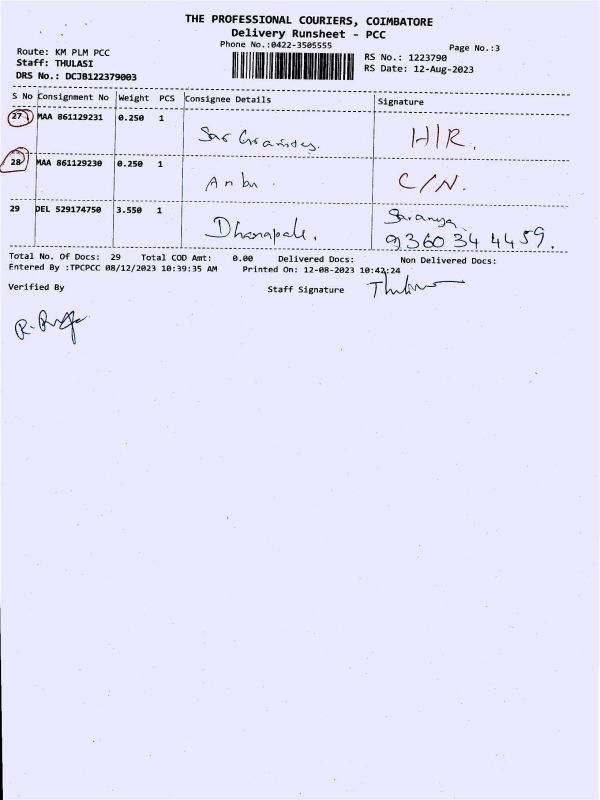 THE PROFESSIONAL COURIERS, COIMBATORE
Delivery Runsheet - PCC
Phone No.:0422-3505555
Page No.:3
Route: KM PLM PCC
RS No.: 1223790
Staff: THULASI
RS Date: 12-Aug-2023
DRS No.: DCJB122379003
S No Consignment No Weight PCS Consignee Details Signature
27 MAA 861129231 0.250 1 H/R.
28 MAA 861129230 0.250 1 Anbu. C/N.
29 DEL 529174750 3.550 1 Dhanapal. Saranya
9360344459.
Total No. Of Docs: 29 Total COD Amt: 0.00 Delivered Docs: Non Delivered Docs:
Entered By :TPCPCC 08/12/2023 10:39:35 AM Printed On: 12-08-2023 10:42:24
Verified By Staff Signature